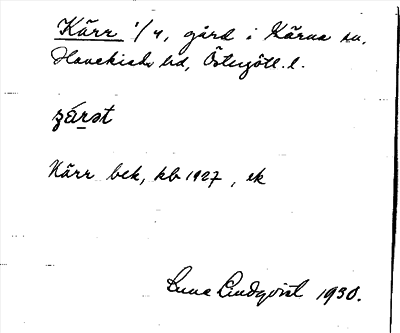 Kärr 1/4, gård i Kärna sn.
Hanekinds hd, Östergötl. l.
Kärr bek, kb 1927, ek
Sune Lindqvist 1930.